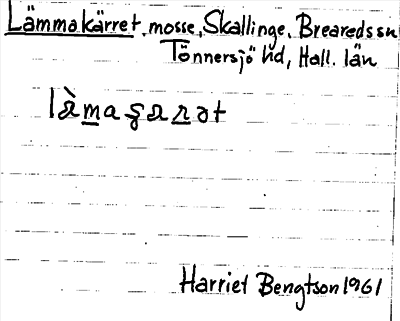 Lämmakärret, mosse, Skallinge, Breareds sn
Tönnersjö hd, Hall. län
Harriet Bengtson 1961